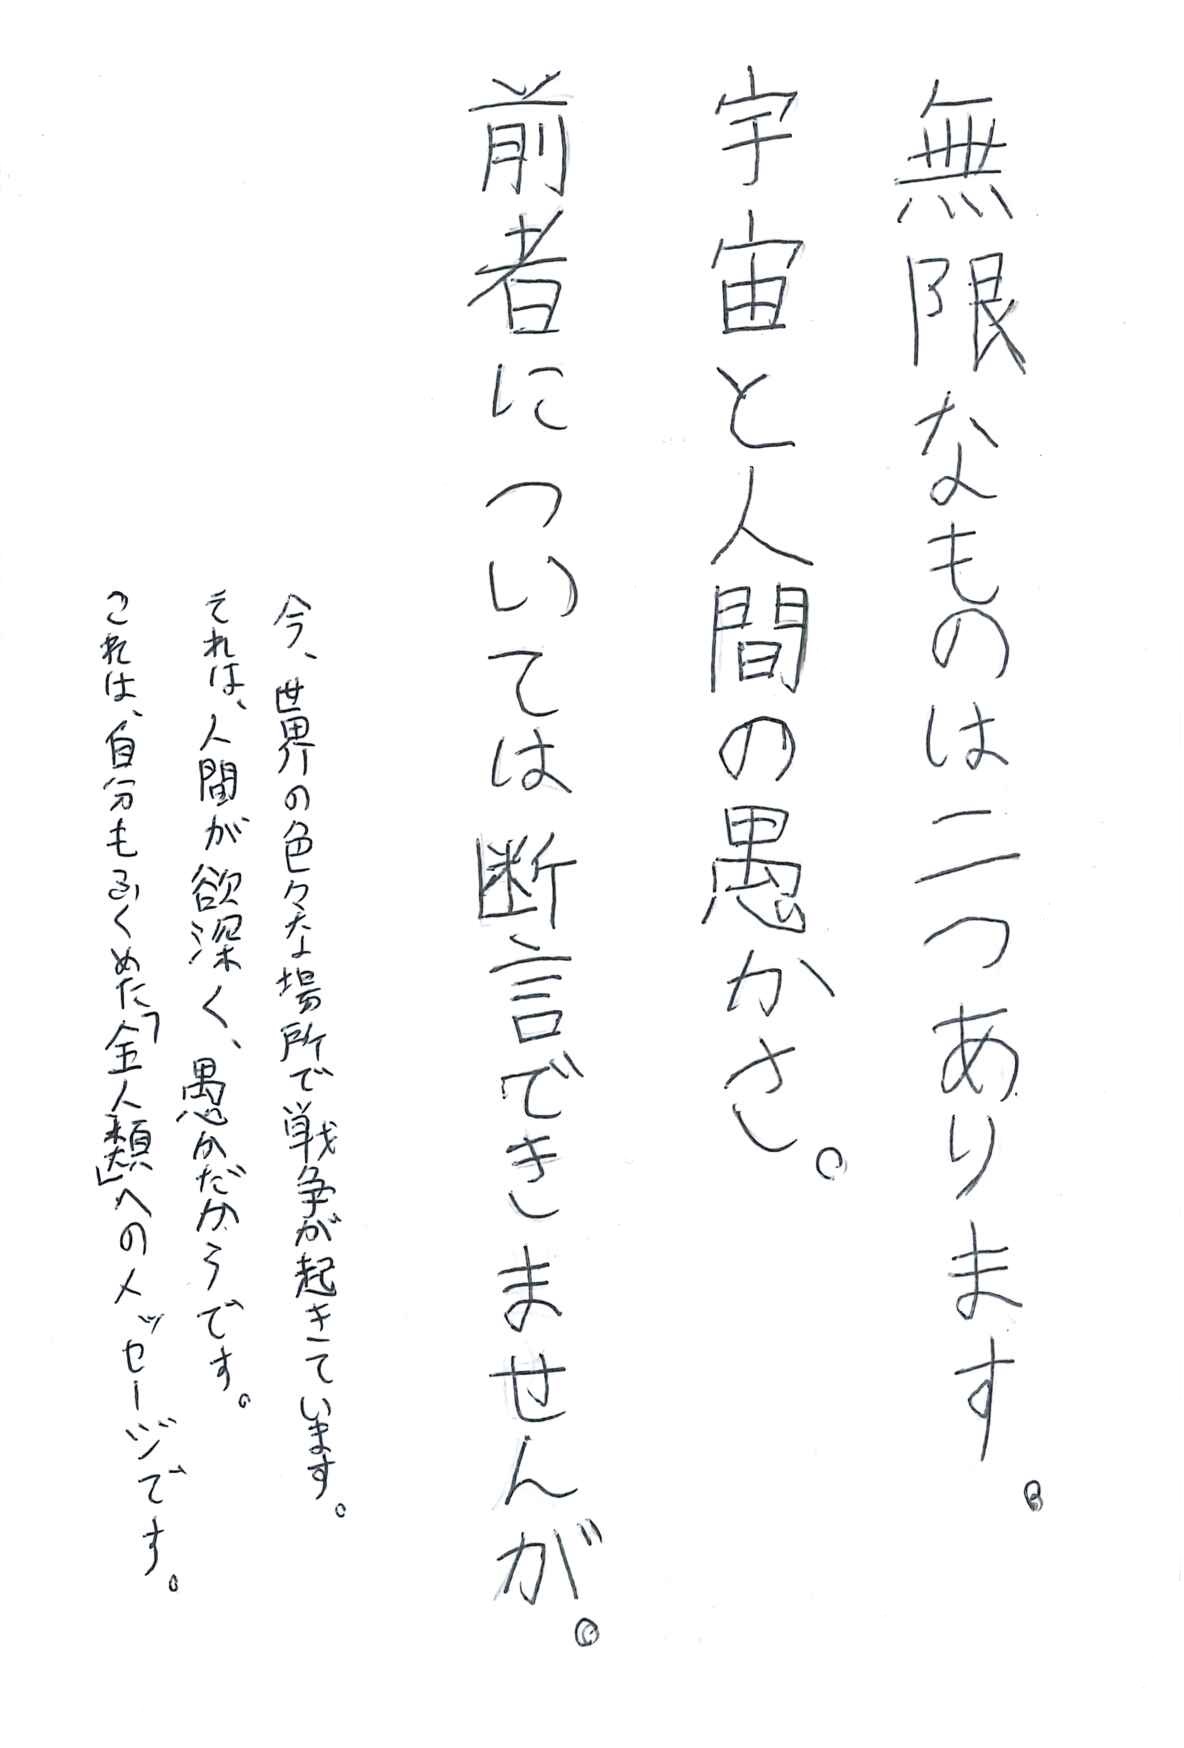 無限なものは二つあります。
宇宙と人間の愚かさ。
前者については断言できませんが。
今、世界の色々な場所で戦争が起きています。
それは、人間が欲深く、愚かだからです。
これは、自分もふくめた「全人類」へのメッセージです。